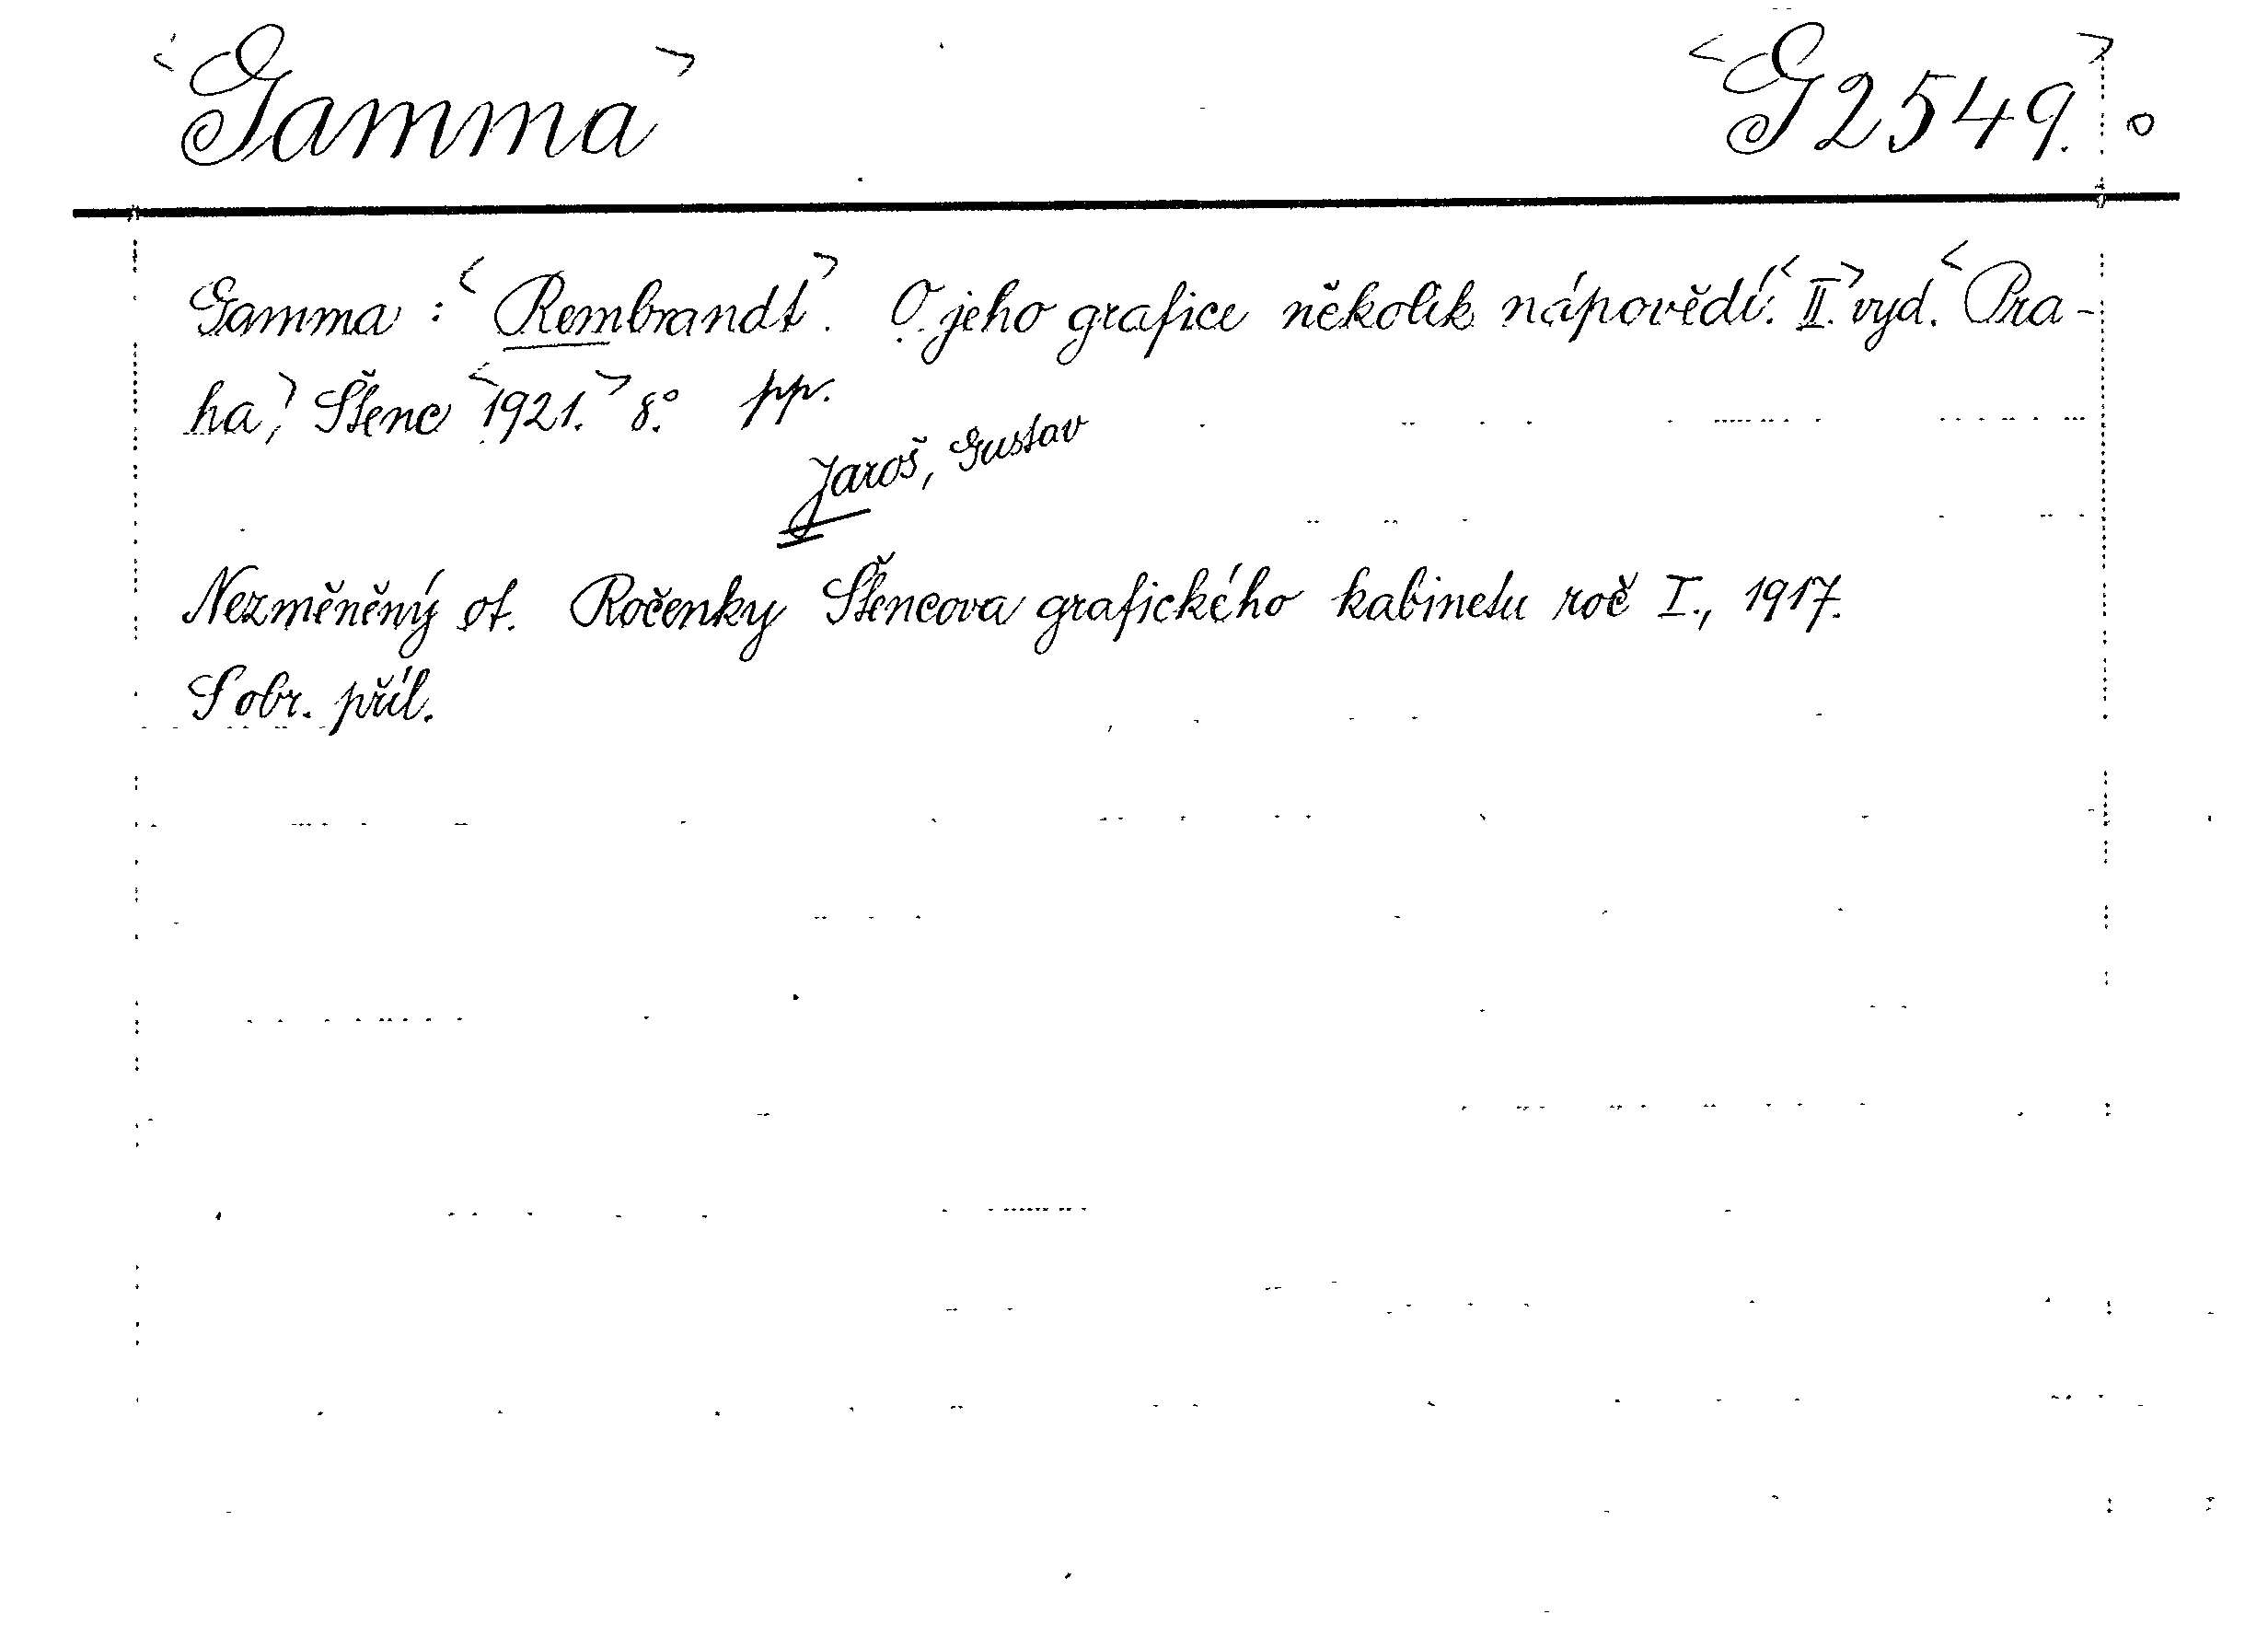 <Gamma> <G 2549.> o
Gamma : <Rembrandt>. O jeho grafice několik nápovědí. <II.> vyd. <Pra-
ha,> Štenc <1921.> 8.° pp.
Jaroš, Gustav
Nezměněný ot. Ročenky Štencova grafického kabinetu roč I., 1917.
S obr. příl.